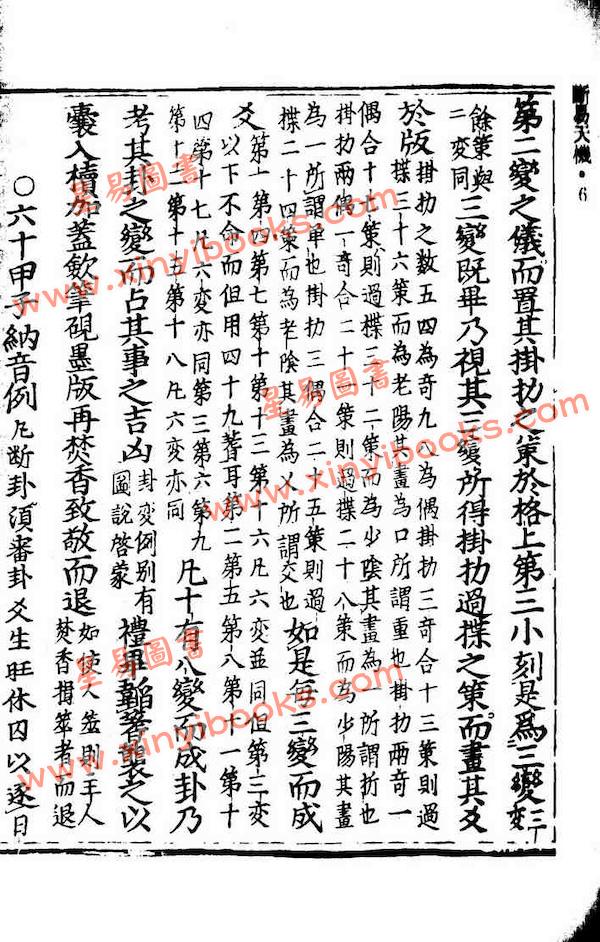 斷易天機·6
第二變之儀而置其掛扐之策於格上第三小刻是為三變三变
餘策與二变同三變既畢乃視其三變所得掛扐過揲之策而畫其爻
於版掛扐之数五四為奇九八為偶掛扐三奇合十三策則過
揲三十六策而為老陽其畫為口所謂重也掛扐兩奇一
偶合十七策則過揲三十二策而為少陰其畫為一所謂折也
掛扐兩偶一奇合二十一策則過揲二十八策而為少陽其畫
為一所謂單也掛扐三偶合二十五策則過
揲二十四策而為老陰其畫為乂所謂交也如是每三變而成
爻第一第四第七第十第十三第十六凡六变並同但第三变
以下不命而但用四十九蓍耳第二第五第八第十一第十
四第十七凡六变亦同第三第六第九
第十二第十五第十八凡六变亦同凡十有八變而成卦乃
考其卦之變而占其事之吉凶卦变例別有圖說啓蒙禮畢韜蓍襲之以
囊入櫝加蓋斂筆硯墨版再焚香致敬而退如使人筮則主人焚香揖筮者而退
○六十甲子納音例凡断卦須審卦爻生旺休囚以逐日
星易圖書
www.xinyibooks.com
星易圖書
www.xinyibooks.com
星易圖書
www.xinyibooks.com
星易圖書
www.xinyibooks.com